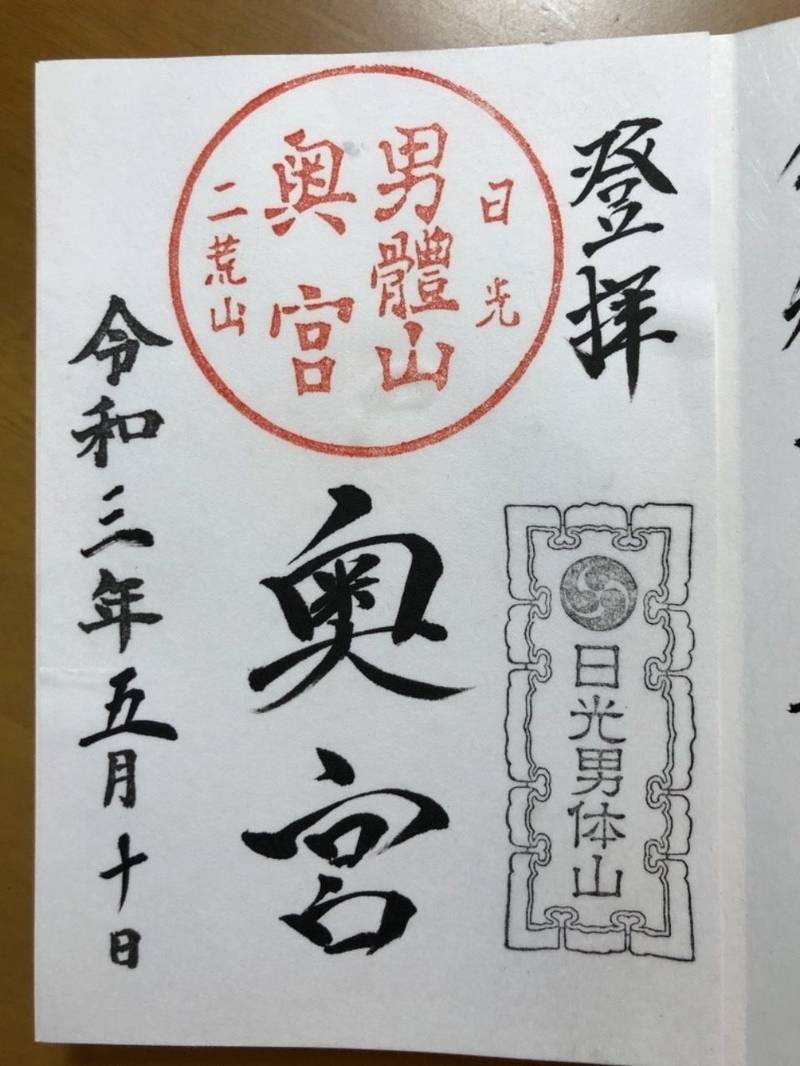 登拝
日光男体山
日光
男體山
奥宮
二荒山
奥宮
令和三年五月十日